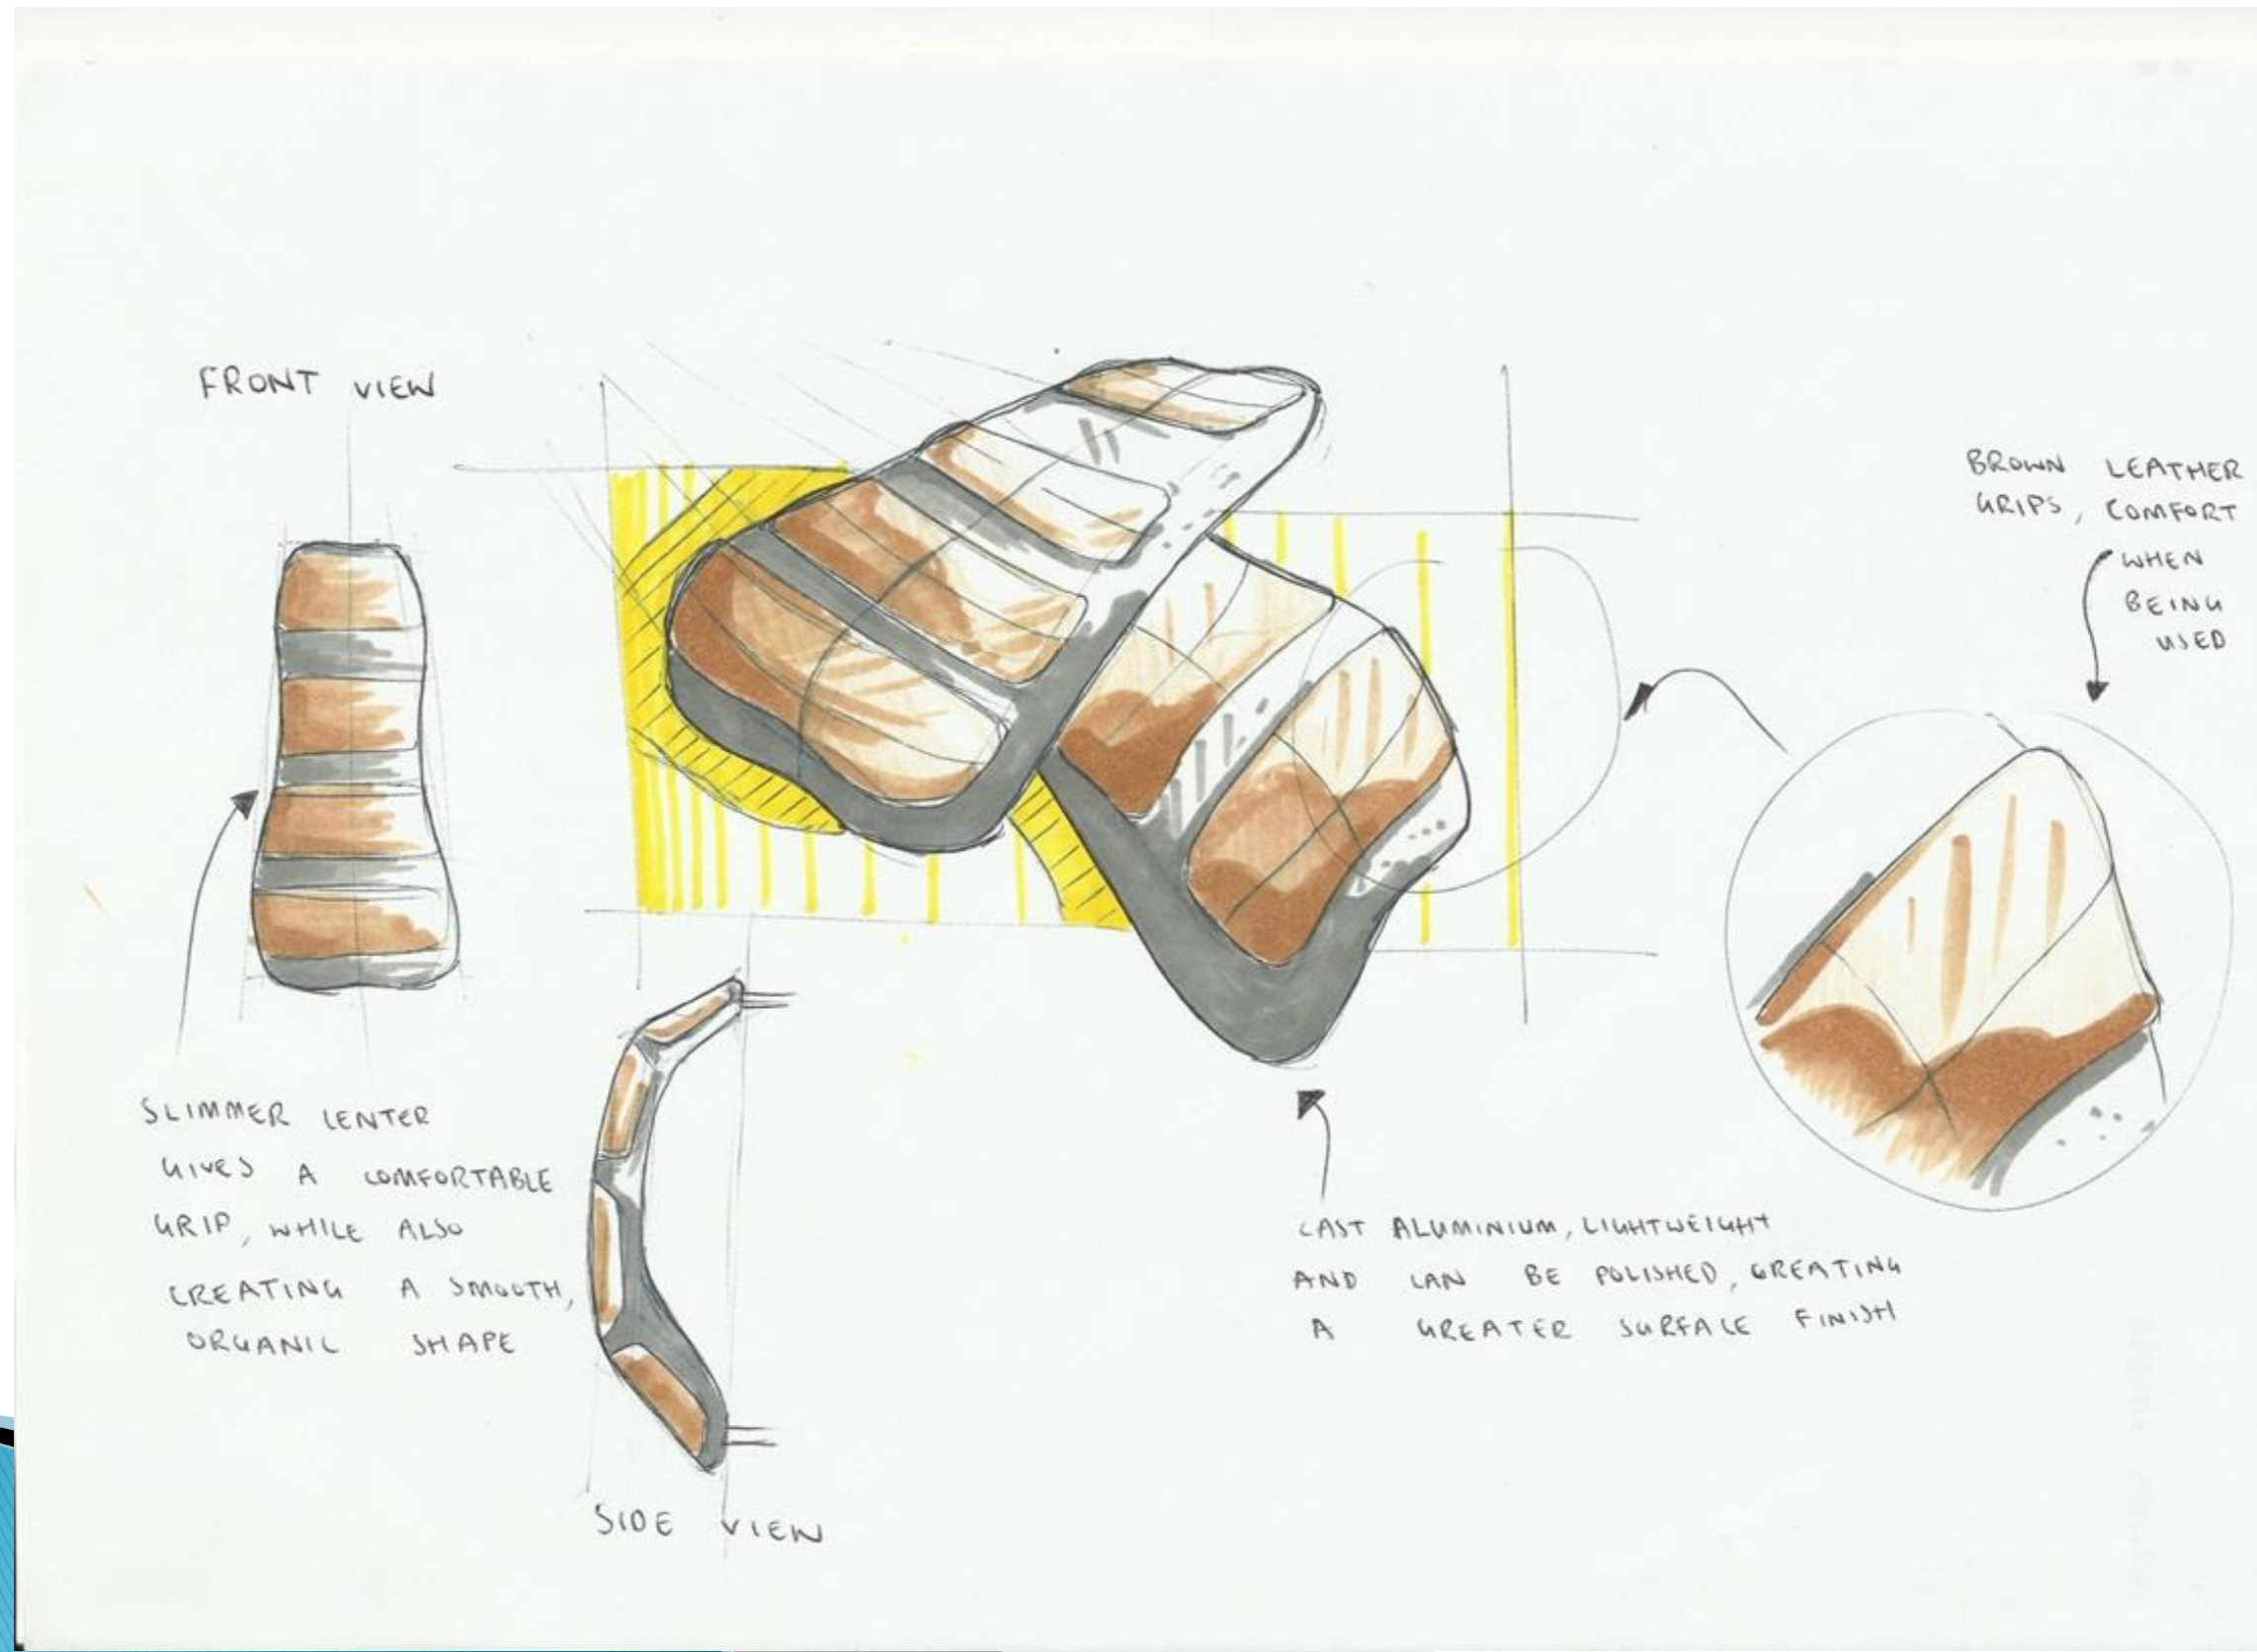 FRONT VIEW
BROWN LEATHER
GRIPS, COMFORT
WHEN
BEING
USED
SLIMMER CENTER
GIVES A COMFORTABLE
GRIP, WHILE ALSO
CREATING A SMOOTH,
ORGANIC SHAPE
CAST ALUMINIUM, LIGHTWEIGHT
AND CAN BE POLISHED, CREATING
A GREATER SURFACE FINISH
SIDE VIEW